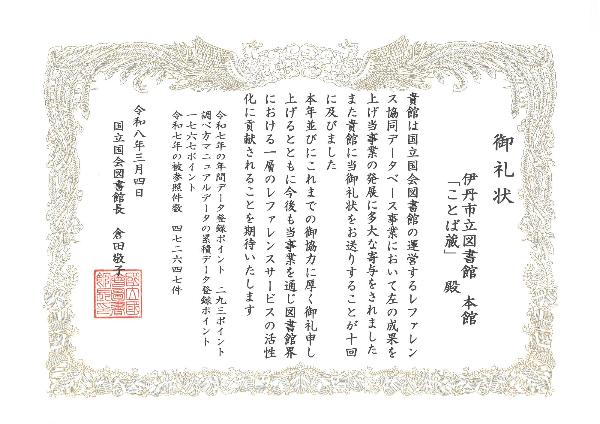 御礼状
伊丹市立図書館 本館
「ことば蔵」 殿
貴館は国立国会図書館の運営するレファレン
ス協同データベース事業において左の成果を
上げ当事業の発展に多大な寄与をされました
また貴館に当御礼状をお送りすることが十回
に及びました
本年並びにこれまでの御協力に厚く御礼申し
上げるとともに今後も当事業を通じ図書館界
における一層のレファレンスサービスの活性
化に貢献されることを期待いたします
令和七年の年間データ登録ポイント 二九三ポイント
調べ方マニュアルデータの累積データ登録ポイント
一七六七ポイント
令和七年の被参照件数 四七二六四七件
令和八年三月四日
国立国会図書館長 倉田敬子